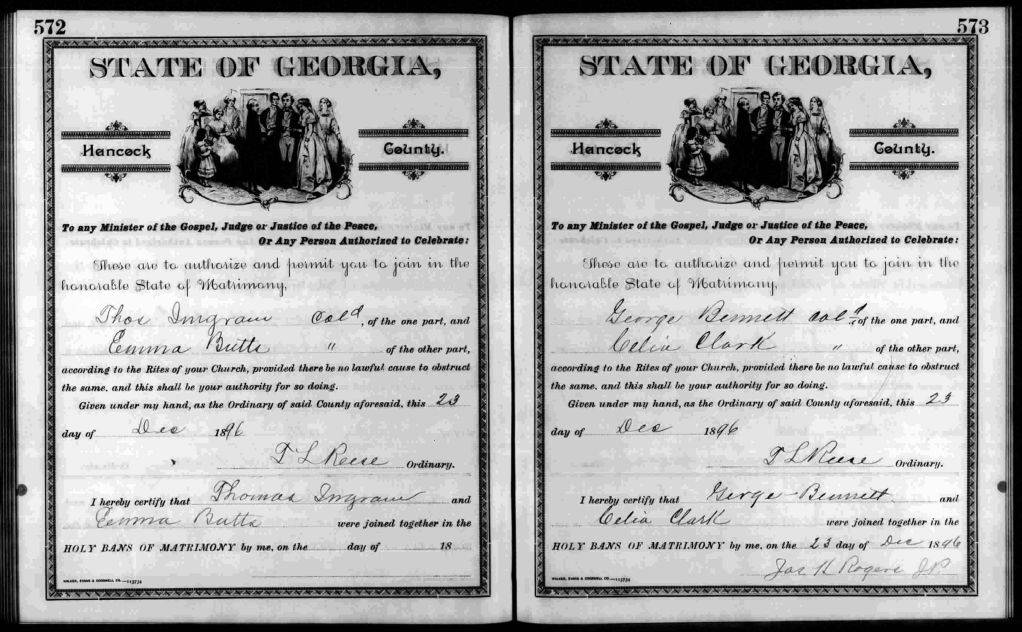 572
STATE OF GEORGIA,
Hancock County.
To any Minister of the Gospel, Judge or Justice of the Peace,
Or Any Person Authorized to Celebrate:
These are to authorize and permit you to join in the
honorable State of Matrimony,
Thos Ingram Cold, of the one part, and
Emma Butts " of the other part,
according to the Rites of your Church, provided there be no lawful cause to obstruct
the same, and this shall be your authority for so doing.
Given under my hand, as the Ordinary of said County aforesaid, this 23
day of Dec 1896
T L Reese Ordinary.
I hereby certify that Thomas Ingram and
Emma Butts were joined together in the
HOLY BANS OF MATRIMONY by me, on the day of 18
WALKER, EVANS & COGSWELL CO.—113734
573
STATE OF GEORGIA,
Hancock County.
To any Minister of the Gospel, Judge or Justice of the Peace,
Or Any Person Authorized to Celebrate:
These are to authorize and permit you to join in the
honorable State of Matrimony,
George Bennett Cold, of the one part, and
Celia Clark " of the other part,
according to the Rites of your Church, provided there be no lawful cause to obstruct
the same, and this shall be your authority for so doing.
Given under my hand, as the Ordinary of said County aforesaid, this 23
day of Dec 1896
T L Reese Ordinary.
I hereby certify that Gerge Bennett and
Celia Clark were joined together in the
HOLY BANS OF MATRIMONY by me, on the 23 day of Dec 1896
Jas H Rogers J P
WALKER, EVANS & COGSWELL CO.—113734